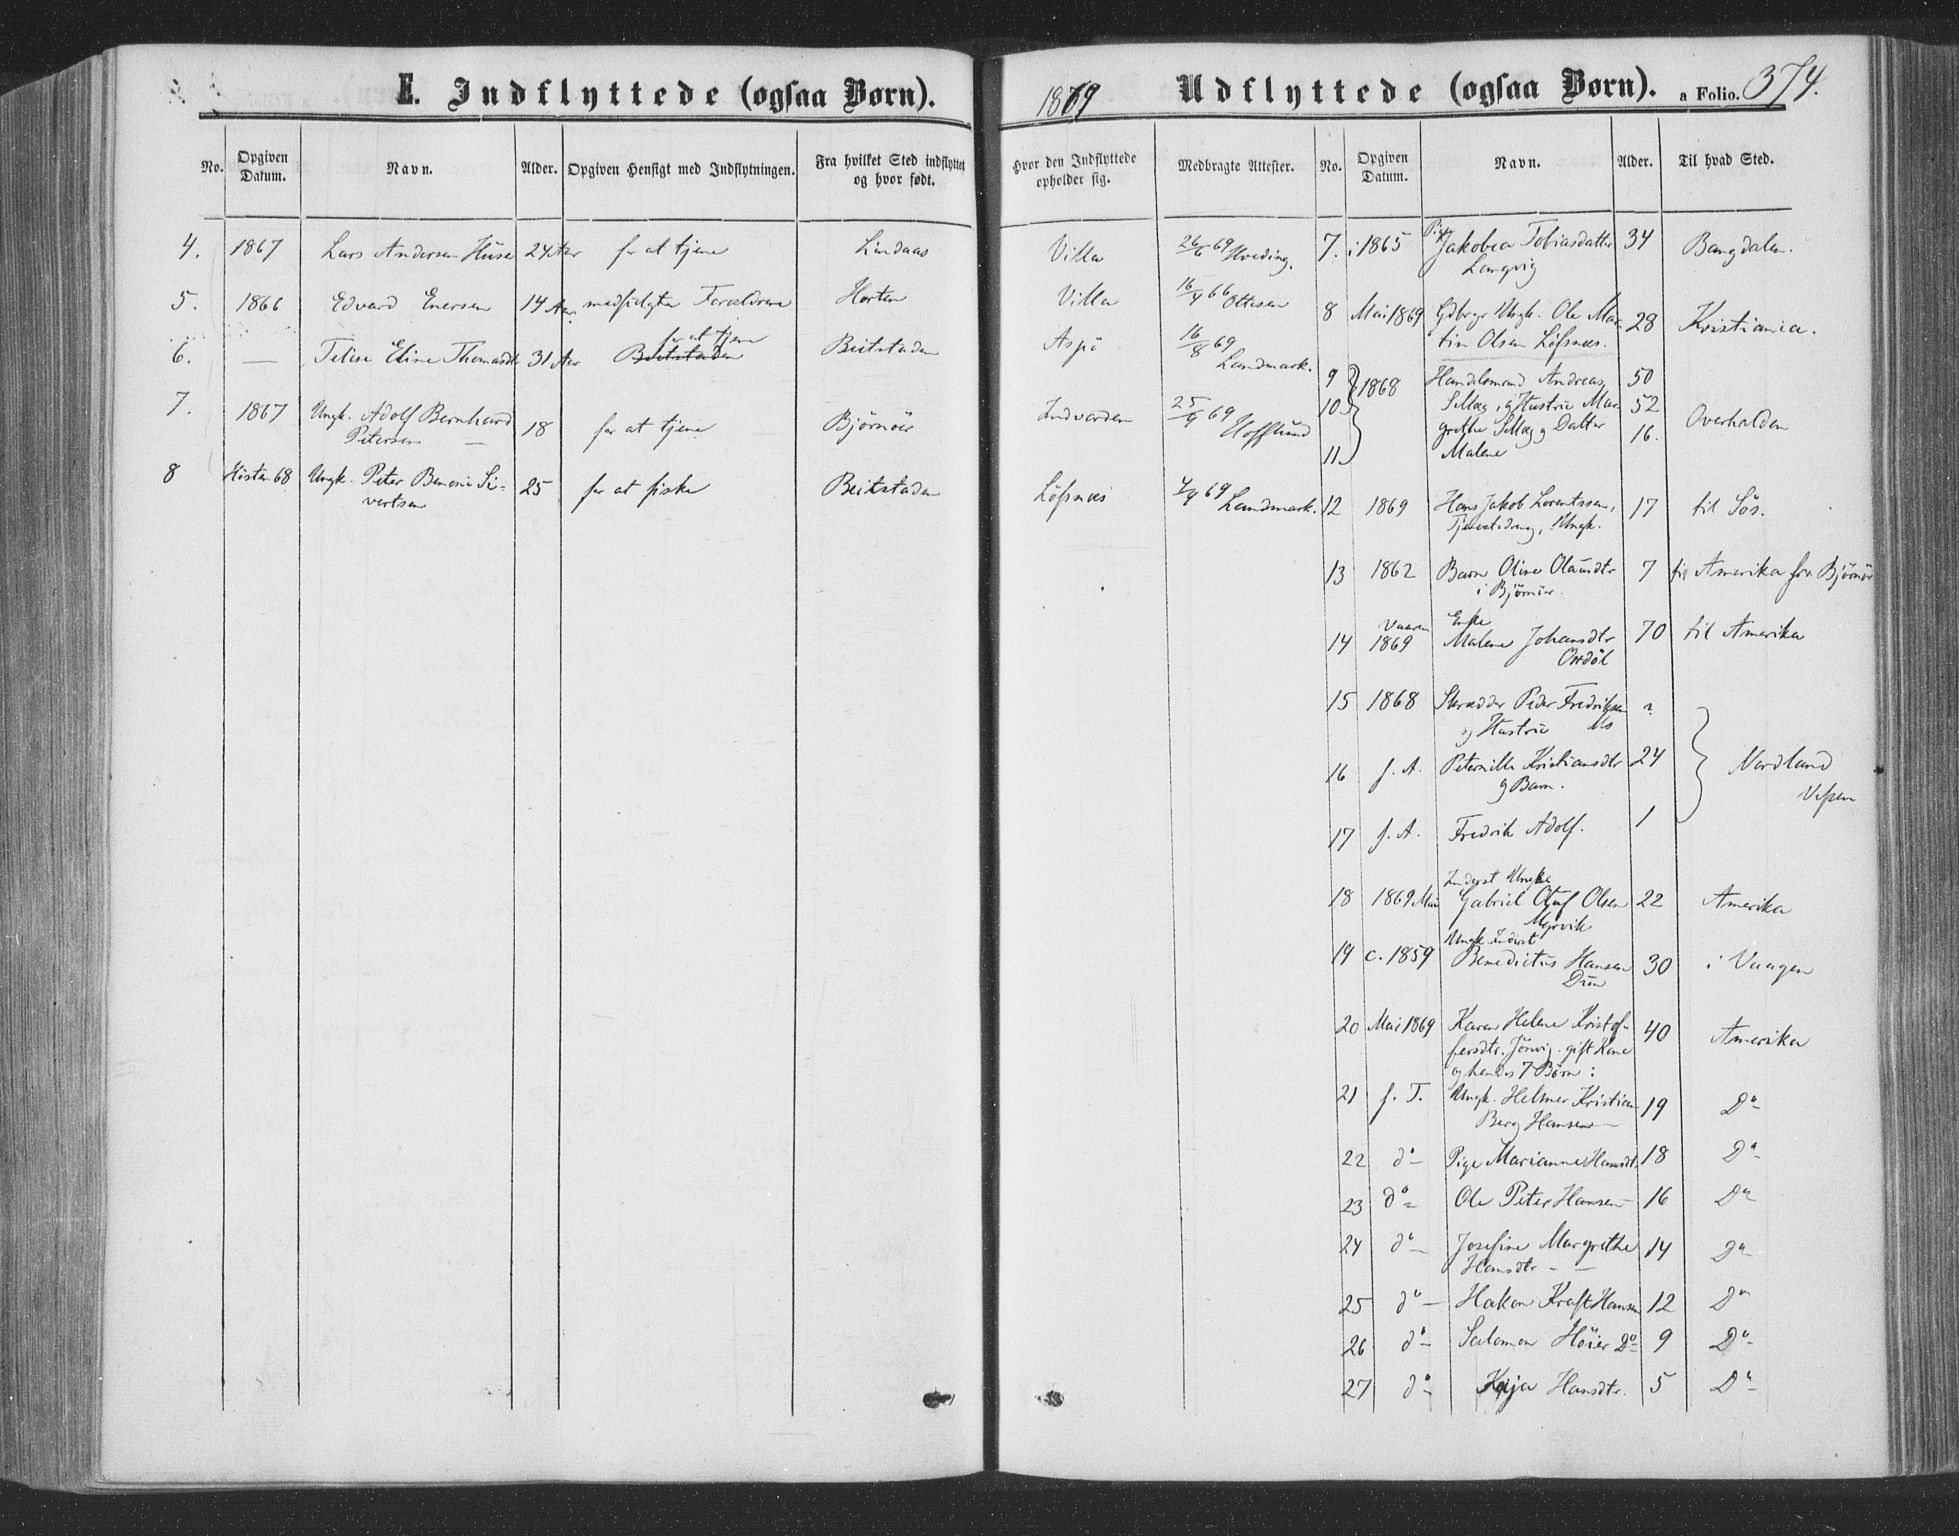 E. Indflyttede (ogsaa Børn).
1869
Udflyttede (ogsaa Børn).
a Folio. 374.
No. Opgiven Datum. Navn. Alder. Opgiven Hensigt med Indflytningen. Fra hvilket Sted indflyttet og hvor født. Hvor den Indflyttede opholder sig. Medbragte Attester.
4. 1867 Lars Andersen Huse 24 Aar for at tjene Lindaas Villa 26/6 69 Hveding.
5. 1866 Edvard Enersen 14 Aar. medfulgte Forældrene Horten Villa 16/4 66 Ottesen
for at tjene
6. — Eline Thomasdtr 31 Aar Beitstaden Beitstaden Aspö 16/8 69
Landmark.
7. 1867 Ungk. Adolf Bernhard 18 for at tjene Björnör Indvorden 25/9 69
Petersen — Hofflund
8 Hösten 68 Ungk. Peter Benoni Si- 25 for at fiske Beitstaden Löfsnæs 69 Landmark.
vertsen
No. Opgiven Datum. Navn. Alder. Til hvad Sted.
7. i 1865 Pige Jakobea Tobiasdatter 34 Bangdalen.
Langvig
8 Mai 1869 Gdbrgr Ungk. Ole Mar- 28 Kristiania.
tin Olsen Löfsnæs.
9 1868 Handelsmand Andreas 50
10 og Hustrue Mar- 52 Overhalden
grethe og Datter 16.
11 Malene
12 1869 Hans Jakob Lorentssen, 17 til Sös.
Tjenestedreng, Ungk.
13 1862 Barn Oline Olausdtr 7 til Amerika fra Björnör
i Björnör.
Vaaren Enke
14 1869 Malene Johansdtr 70 til Amerika
15 1868 Skrædder Peder Fredriksen ?
og Hustrue
16 f. A. Peternille Kristiansdtr 24 Nordland
og Barn. Vefsen
17 f. A. Fredrik Adolf. 1
Inderst Ungk.
18 1869 Mai Gabriel Oluf Olsen 22 Amerika
Myrvik
Ungk. Inderst
19 c. 1859 Benedictus Hansen 30 i Vaagen
Dun
20 Mai 1869 Karen Helene Kristof- 40 Amerika
fersdtr. gift Kone
og hendes 7 Börn:
21 f. T. Ungk. Helmer Kristian 19 Do
Berg Hansen —
22 do — Pige Marianne Hansdtr. 18 Do
23 do Ole Peter Hansen — 16 Do
24 do — Josefine Margrethe 14 Do
Hansdtr — —
25 do — Hakon Kraft Hansen 12 Do
26 do — Salomon Höier Do 9 Do
27 do — Kaja Hansdtr. 5 Do